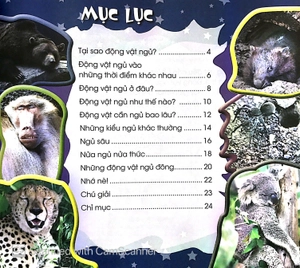 MỤC LỤC
Tại sao động vật ngủ? 4
Động vật ngủ vào
những thời điểm khác nhau 6
Động vật ngủ ở đâu? 8
Động vật ngủ như thế nào? 10
Động vật cần ngủ bao lâu? 12
Những kiểu ngủ khác thường 14
Ngủ sâu 16
Nửa ngủ nửa thức 18
Những động vật ngủ đông 20
Nhớ nè! 22
Chú giải 23
Chỉ mục 24
with CamScanner